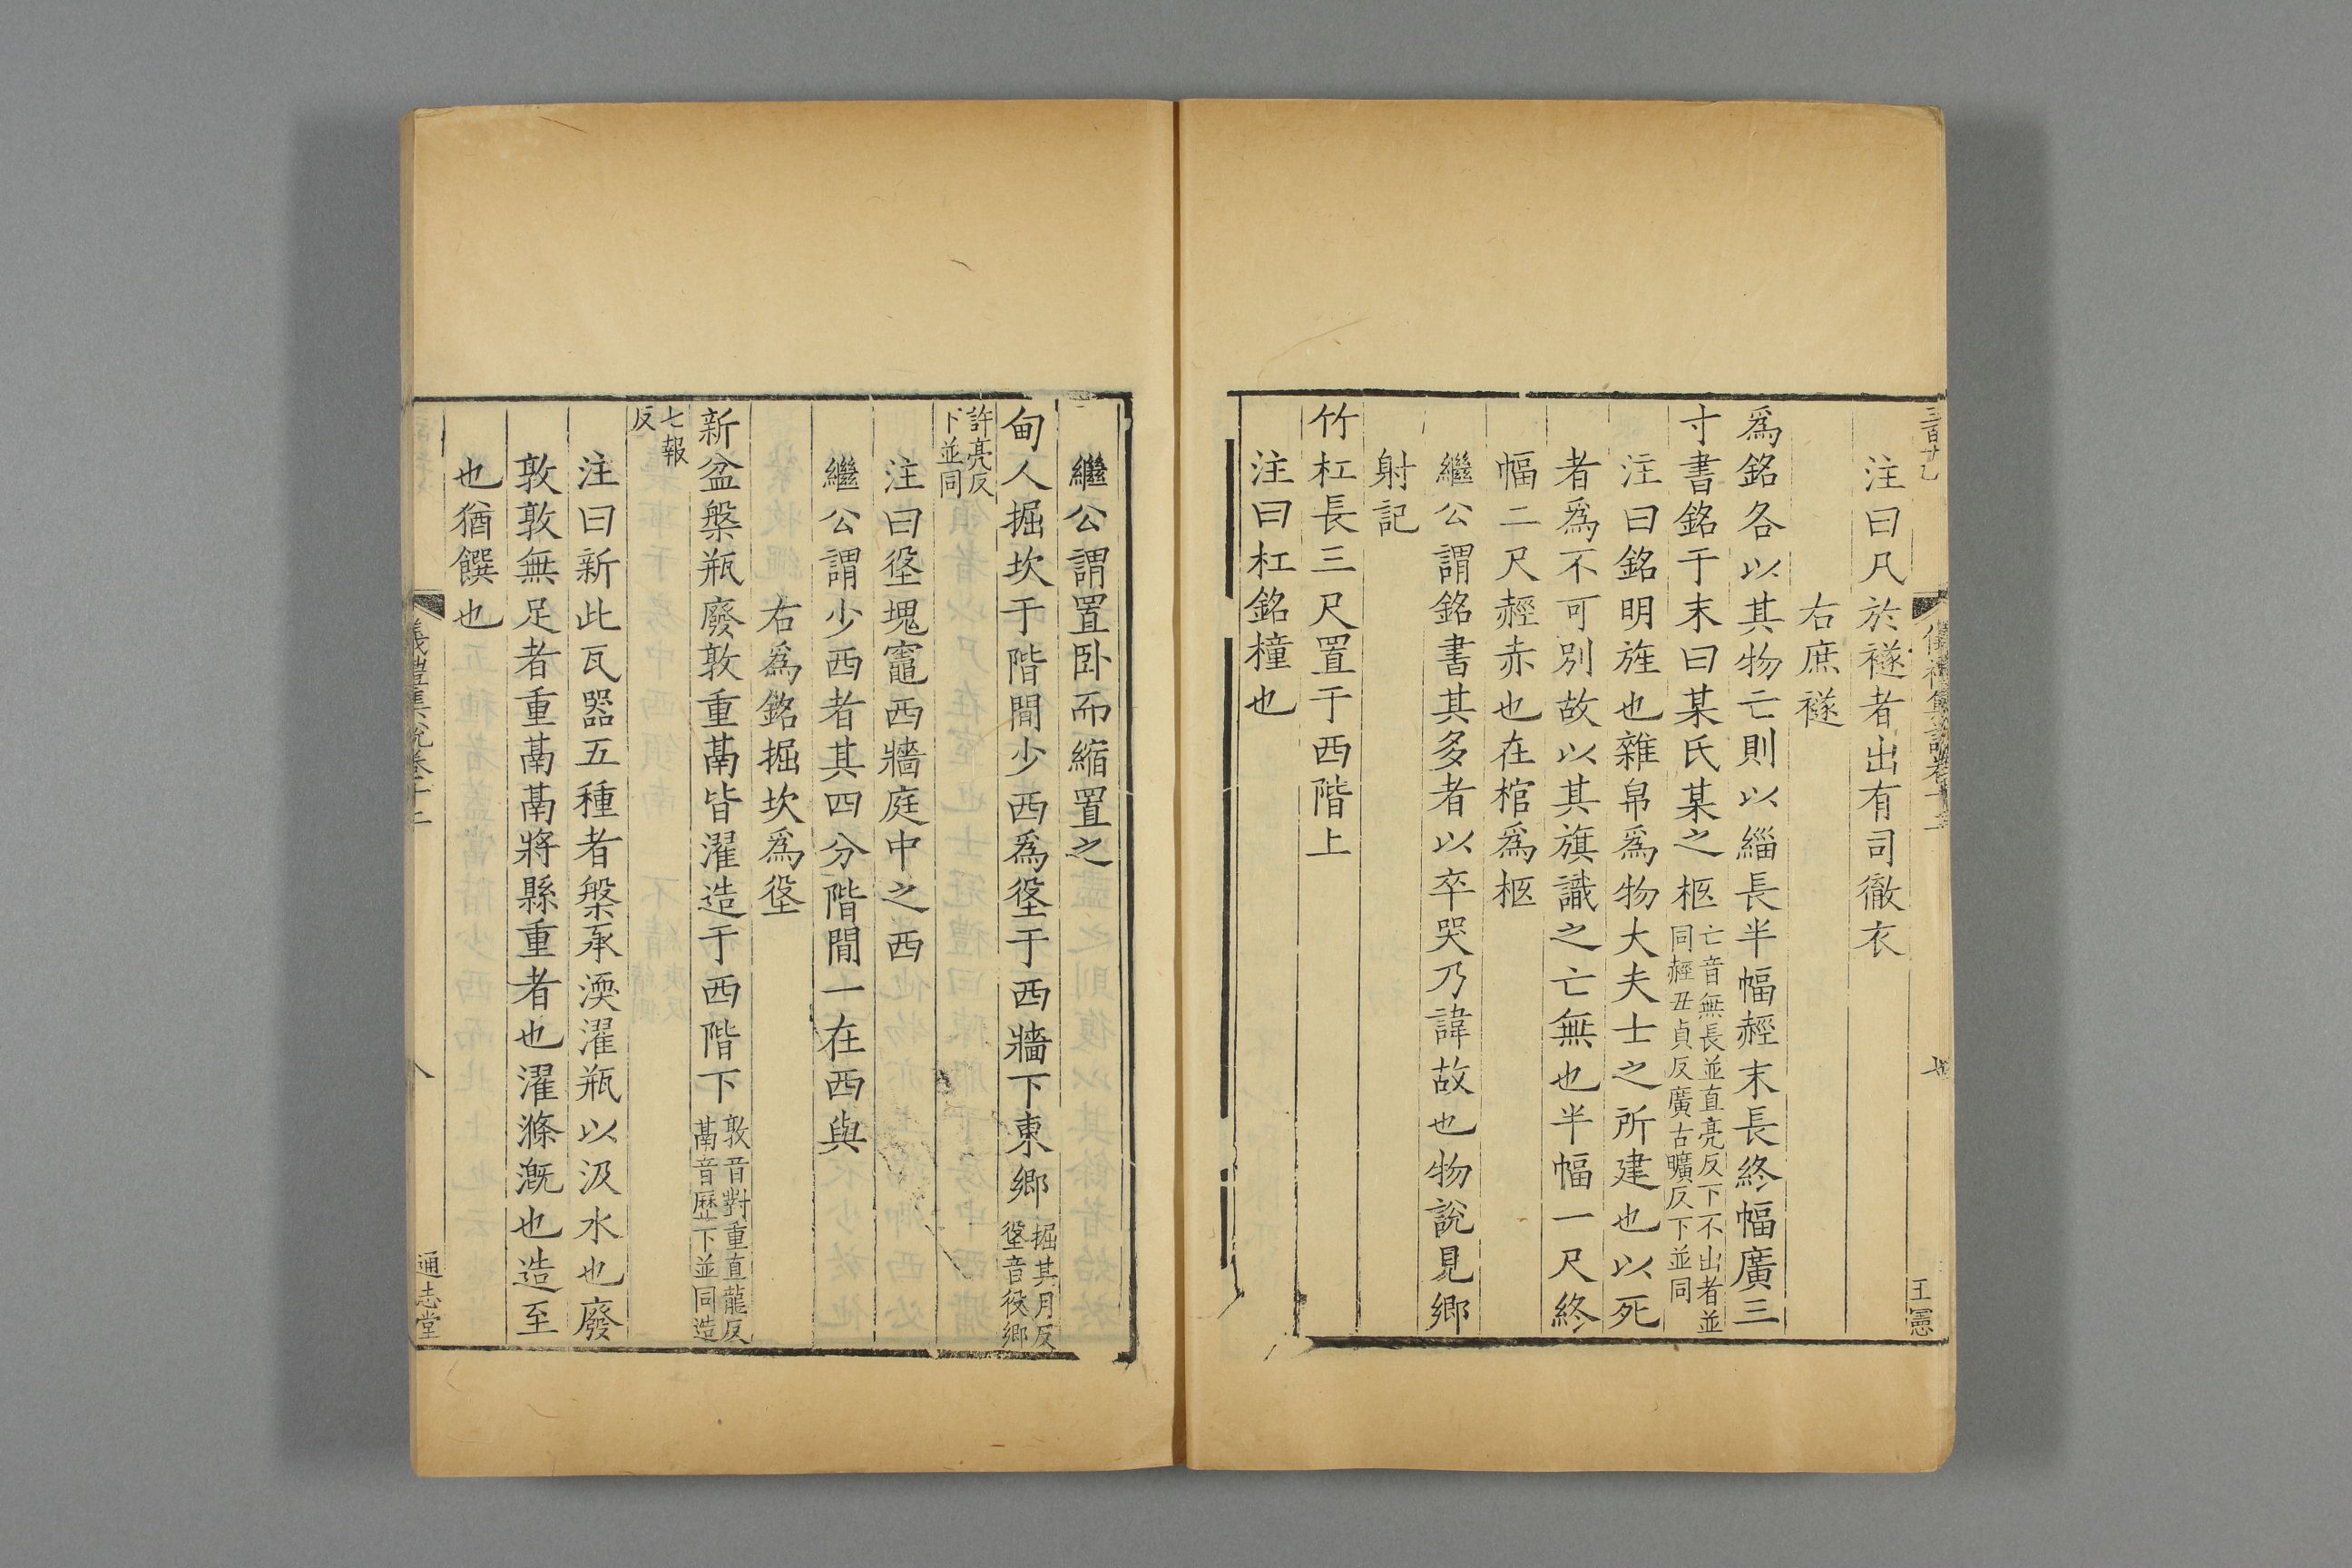 注曰凡於襚者出有司徹衣
右庶襚
爲銘各以其物亡則以緇長半幅䞓末長終幅廣三
寸書銘于末曰某氏某之柩亡音無長並直亮反下不出者並同䞓丑貞反廣古曠反下並同
注曰銘明旌也雜帛爲物大夫士之所建也以死
者爲不可別故以其旗識之亡無也半幅一尺終
幅二尺䞓赤也在棺爲柩
繼公謂銘書其名者以卒哭乃諱故也物說見鄉
射記
竹杠長三尺置于西階上
注曰杠銘橦也
王憲
繼公謂置卧而縮置之
甸人掘坎于階間少西爲垼于西牆下東鄉掘其月反垼音役鄉
許亮反下並同
注曰垼塊竈西牆庭中之西
繼公謂少西者其四分階間一在西與
右爲銘掘坎爲垼
新盆槃瓶廢敦重鬲皆濯造于西階下敦音對重直龍反鬲音歷下並同造
七報反
注曰新此瓦器五種者槃承渜濯瓶以汲水也廢
敦敦無足者重鬲鬲將縣重者也濯滌漑也造至
也猶饌也
儀禮集說卷十二
八
通志堂